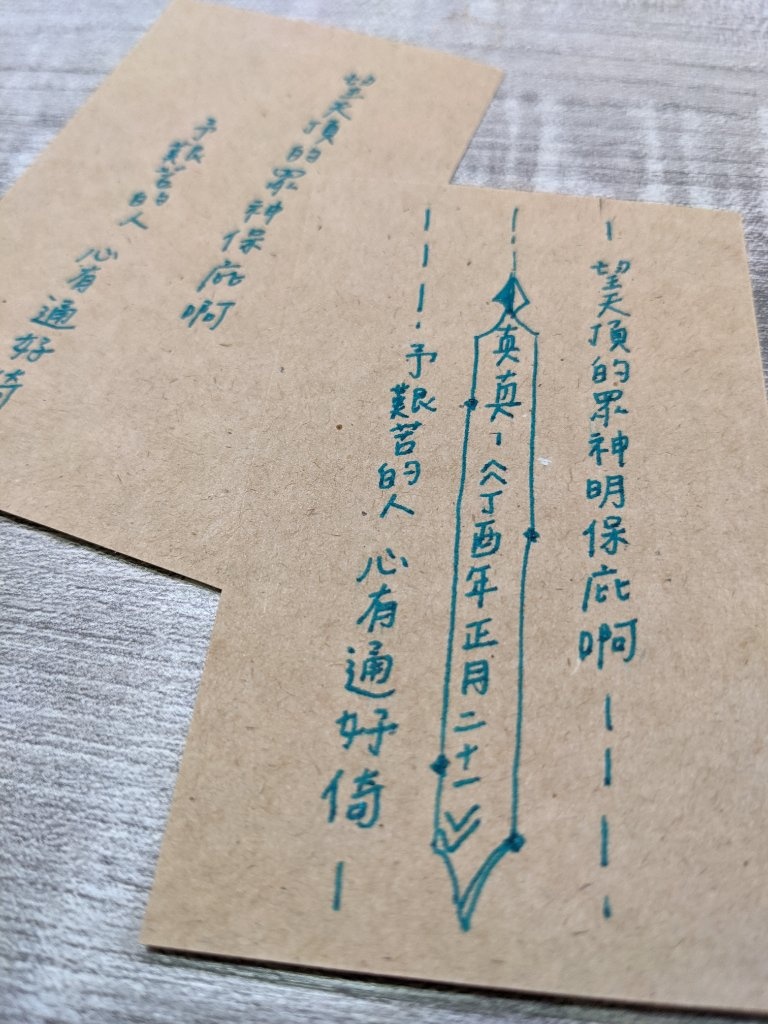 望天頂的眾神明保庇啊
真真-《丁酉年正月二十一》
予艱苦的人 心有通好倚
望天頂的眾神保庇啊
予艱苦的人、心有通好